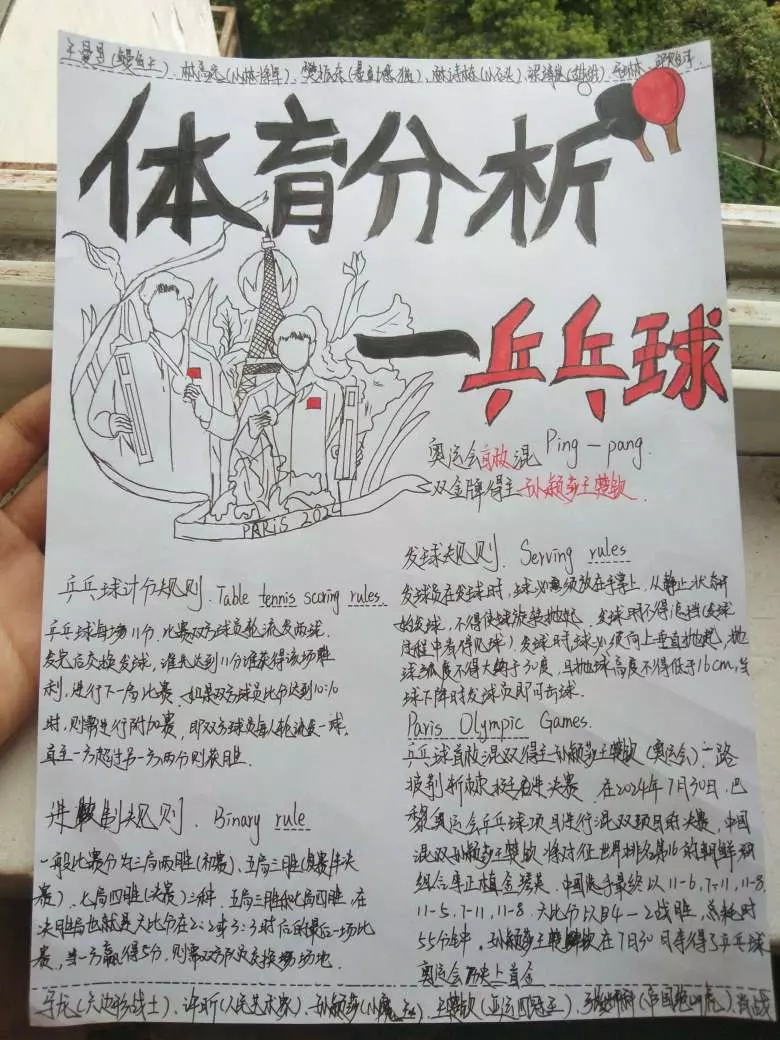 王曼昱(鳗鱼王)、林高远(小林将军)、樊振东(暴力熊猫)、林诗栋(小石头)、梁靖崑(胖胖)
体育分析
一乒乓球
奥运会首枚混 Ping-pang.
双金牌得主 孙颖莎王楚钦.
PARIS
乒乓球计分规则. Table tennis scoring rules.
乒乓球每场11分,比赛双方球员轮流发两球.
发完后交换发球,谁先达到11分谁获得该场胜
利,进行下一局比赛.如果双方球员比分达到10:10
时,则需进行附加赛,即双方球员每人轮流发一球.
直至一方超过另一方两分则获胜.
进制规则. Binary rule
一般比赛分为三局两胜(初赛)、五局三胜(复赛半决
赛)、七局四胜(决赛)三种.五局三胜和七局四胜.在
决胜局也就是大比分在2:2或3:3时后的最后一场比
赛,当一方赢得5分,则需双方球员交换场地.
发球规则. Serving rules
发球员在发球时,球必须放在手掌上.从静止状态开
始发球,不得使球旋转抛起.发球时不得遮挡(发球
过程中看得见球).发球时球必须向上垂直抛起,抛
球弧度不得大于30度,且抛球高度不得低于16cm,当
球下降时发球员即可击球.
Paris Olympic Games.
乒乓球首枚混双得主孙颖莎王楚钦(奥运会)一路
披荆斩棘挺进决赛.在2024年7月30日,巴
黎奥运会乒乓球项目进行混双项目的决赛,中国
混双孙颖莎王楚钦将对征世界排名第16的朝鲜
组合李正植金琴英.中国选手最终以11-6,7-11,11-8
11-5,7-11,11-8.大比分以4-2战胜,总耗时
55分钟.孙颖莎王楚钦在7月30日夺得了乒乓球
奥运会历史上首金
马龙(六边形战士)、许昕(人民艺术家)、孙颖莎(小魔王)、王楚钦(亚运四冠王)